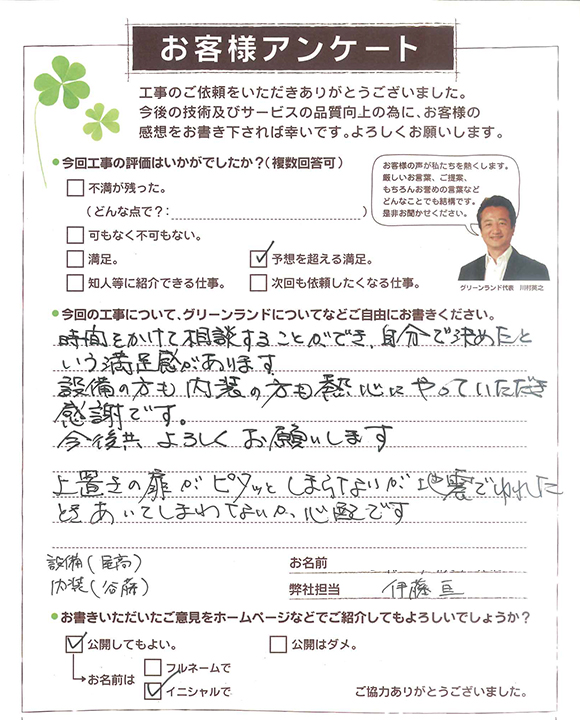 お客様アンケート
工事のご依頼をいただきありがとうございました。
今後の技術及びサービスの品質向上の為に、お客様の
感想をお書き下されば幸いです。よろしくお願いします。
●今回工事の評価はいかがでしたか?(複数回答可)
お客様の声が私たちを熱くします。
厳しいお言葉、ご提案、
もちろんお誉めの言葉など
どんなことでも結構です。
是非お聞かせください。
グリーンランド代表 川村英之
不満が残った。
(どんな点で?: )
可もなく不可もない。
満足。 予想を超える満足。
知人等に紹介できる仕事。 次回も依頼したくなる仕事。
●今回の工事について、グリーンランドについてなどご自由にお書きください。
時間をかけて相談することができ、自分で決めたと
いう満足感があります
設備の方も内装の方も熱心にやっていただき
感謝です。
今後共よろしくお願いします
上置きの扉がピタッとしまらないが地震でゆれた
ときあいてしまわないか、心配です
設備(尾高)
内装(谷藤)
お名前
弊社担当 伊藤亘
●お書きいただいたご意見をホームページなどでご紹介してもよろしいでしょうか?
公開してもよい。 公開はダメ。
お名前は フルネームで
イニシャルで
ご協力ありがとうございました。